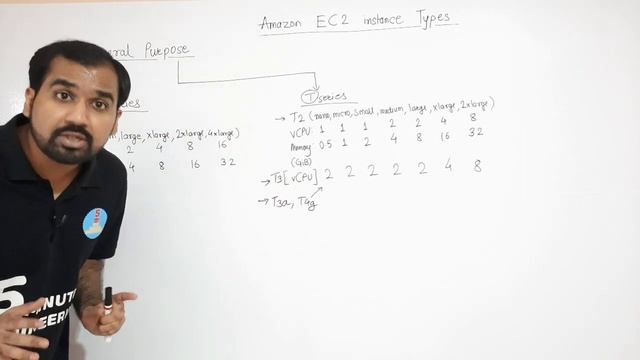 Amazon EC2 instance Types
eral Purpose
T series
ies
→ T2 (nano, micro, small, medium, large, xlarge, 2xlarge)
m, large, xlarge, 2xlarge, 4xlarge)
vCPU: 1 1 1 2 2 4 8
2 4 8 16
Memory 0.5 1 2 4 8 16 32
(GiB)
4 8 16 32
→ T3 [vCPU] 2 2 2 2 2 4 8
→ T3a, T4g
5
MINUT
NEER